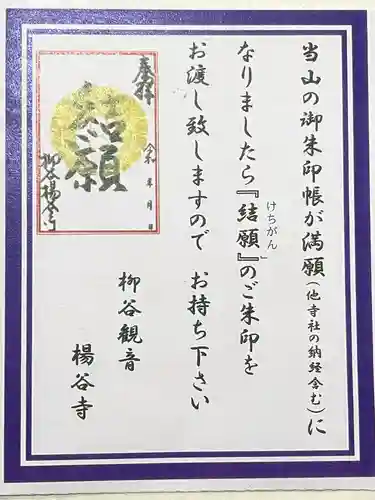 当山の御朱印帳が満願(他寺社の納経含む)に
なりましたら『結願』のご朱印を
けちがん
お渡し致しますので お持ち下さい
柳谷観音
楊谷寺
奉拝
結願
令和 年 月 日
柳谷楊谷寺